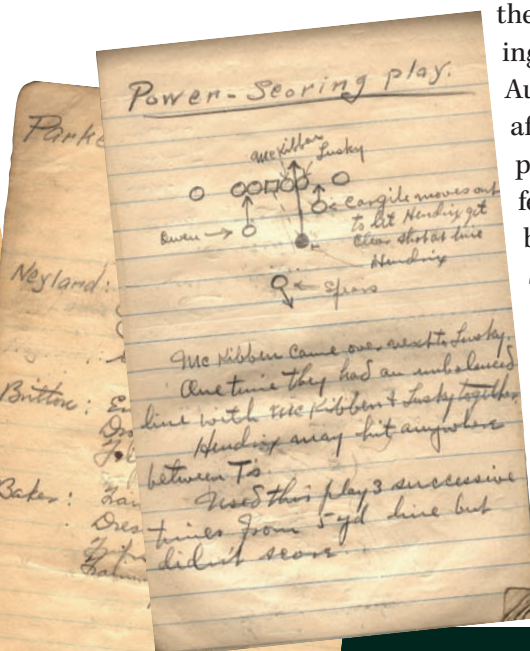 the
ing
Au
af
p
f
b
Parke
Neyland:
Button: E
Dro
Baker:
Dres
Power-Scoring play.
McKibben
Lusky
Cargile moves out
to let Hendrix get
clear shot at line
Hendrix
Owen
Spears
McKibben came over next to Lusky.
One time they had an unbalanced
line with McKibben & Lusky together.
Hendrix may hit anywhere
between T's.
Used this play 3 successive
times from 5 yd line but
didn't score.